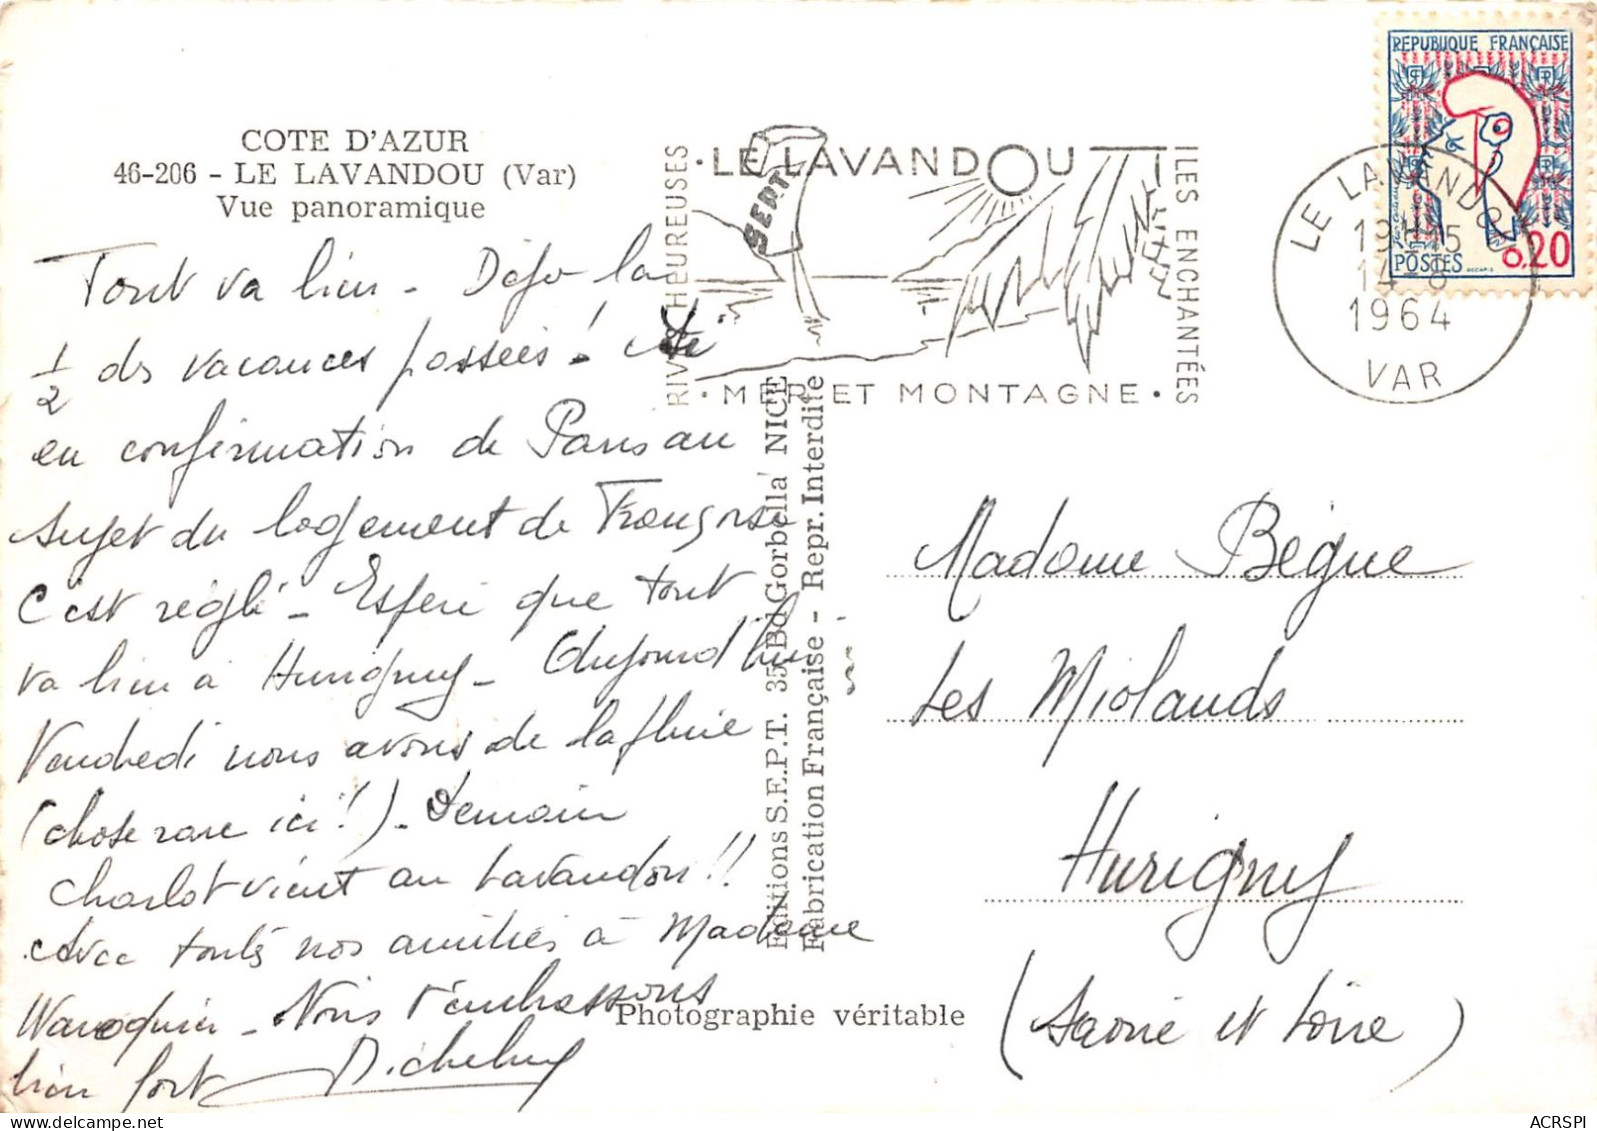 COTE D'AZUR
46-206 - LE LAVANDOU (Var)
Vue panoramique
Tout va bien - Déjà la
1/2 des vacances passées!
en confirmation de Paris au
sujet du logement de Françoise
C'est réglé - Espère que tout
va bien à Hurigny - Aujourd'hui
Vendredi nous avons de la pluie
(chose rare ici!) - Demain
Charlot vient au Lavandou!!
Avec toutes nos amitiés à Madame
- Nous t'embrassons
bien fort
RIVES HEUREUSES
• LE LAVANDOU
SERTI
ILES ENCHANTÉES
• MER ET MONTAGNE •
LE LAVANDOU
19H15
14-8
1964
VAR
REPUBLIQUE FRANÇAISE
0,20
POSTES
DECARIS
Editions S.E.P.T. 35 Bd Gorbella NICE
Fabrication Française - Repr. Interdite
Madame Bégue
Les Miolands
Hurigny
(Saône et Loire)
Photographie véritable
ACRSPI